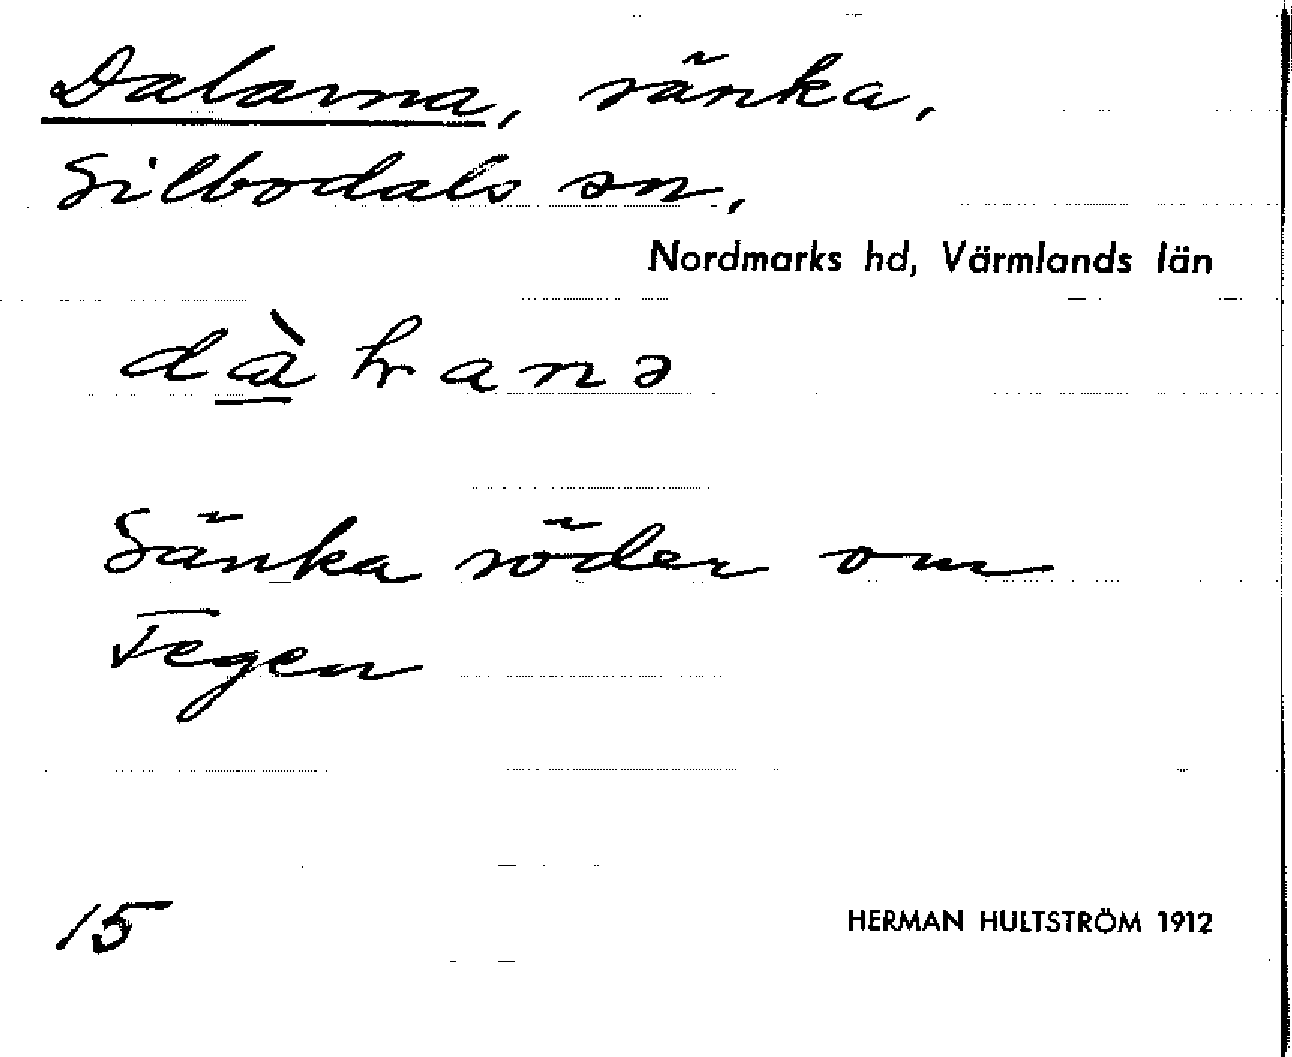 Dalarna, sänka,
Silbodals sn,
Nordmarks hd, Värmlands län
Sänka söder om
Tegen
15
HERMAN HULTSTRÖM 1912